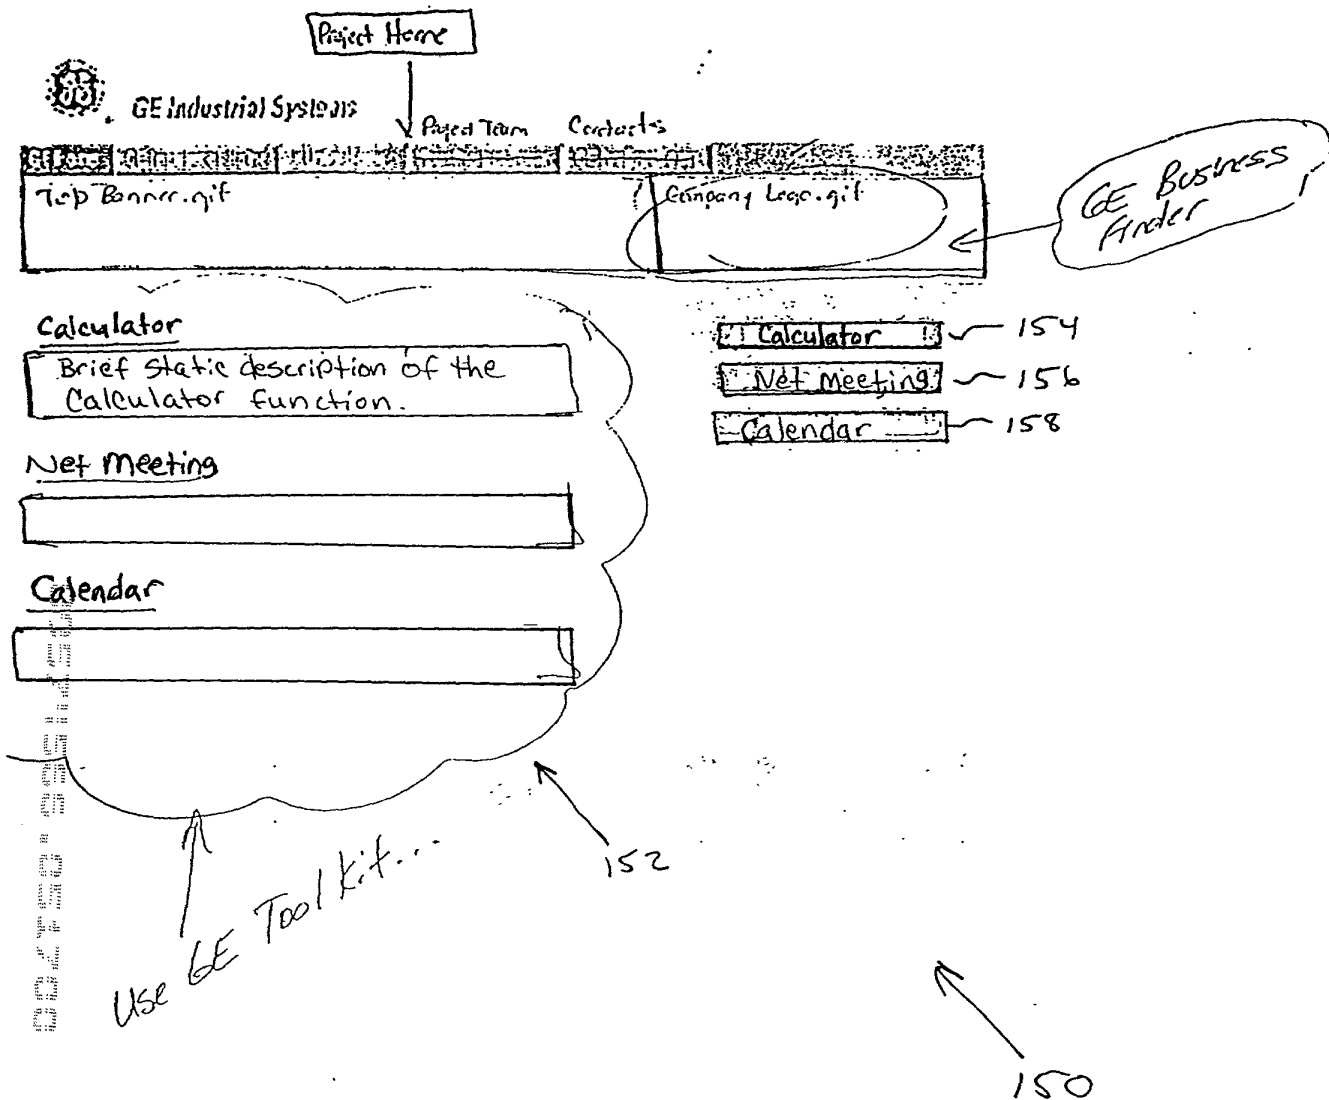 Project Home
GE Industrial Systems
Project Team
Contacts
Top Banner.gif
Company Logo.gif
GE Business
Finder
Calculator
Brief static description of the
Calculator function.
Net Meeting
Calendar
Calculator
154
Net Meeting
156
Calendar
158
152
Use GE Tool Kit...
150